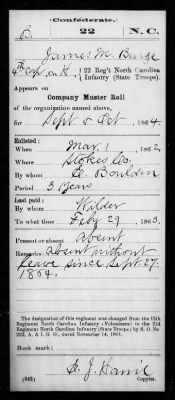 Confederate.
B 22 N.C.
James M. Burge
4th Corp, Co. H, 22 Reg't North Carolina
Infantry (State Troops).
Appears on
Company Muster Roll
of the organization named above,
for Sept & Oct, 1864.
Enlisted:
When Mar 1, 1862.
Where Stokes Co.
By whom Bouldin
Period 3 Years
Last paid:
By whom Wilder
To what time Feby 29, 1863.
Present or absent Absent
Remarks: Absent without
leave since Sept 27.
1864.
The designation of this regiment was changed from the 12th
Regiment North Carolina Infantry (Volunteers) to the 22d
Regiment North Carolina Infantry (State Troops) by S. O. No.
222, A. & I. G. O., dated November 14, 1861.
Book mark:
(642) Copyist.